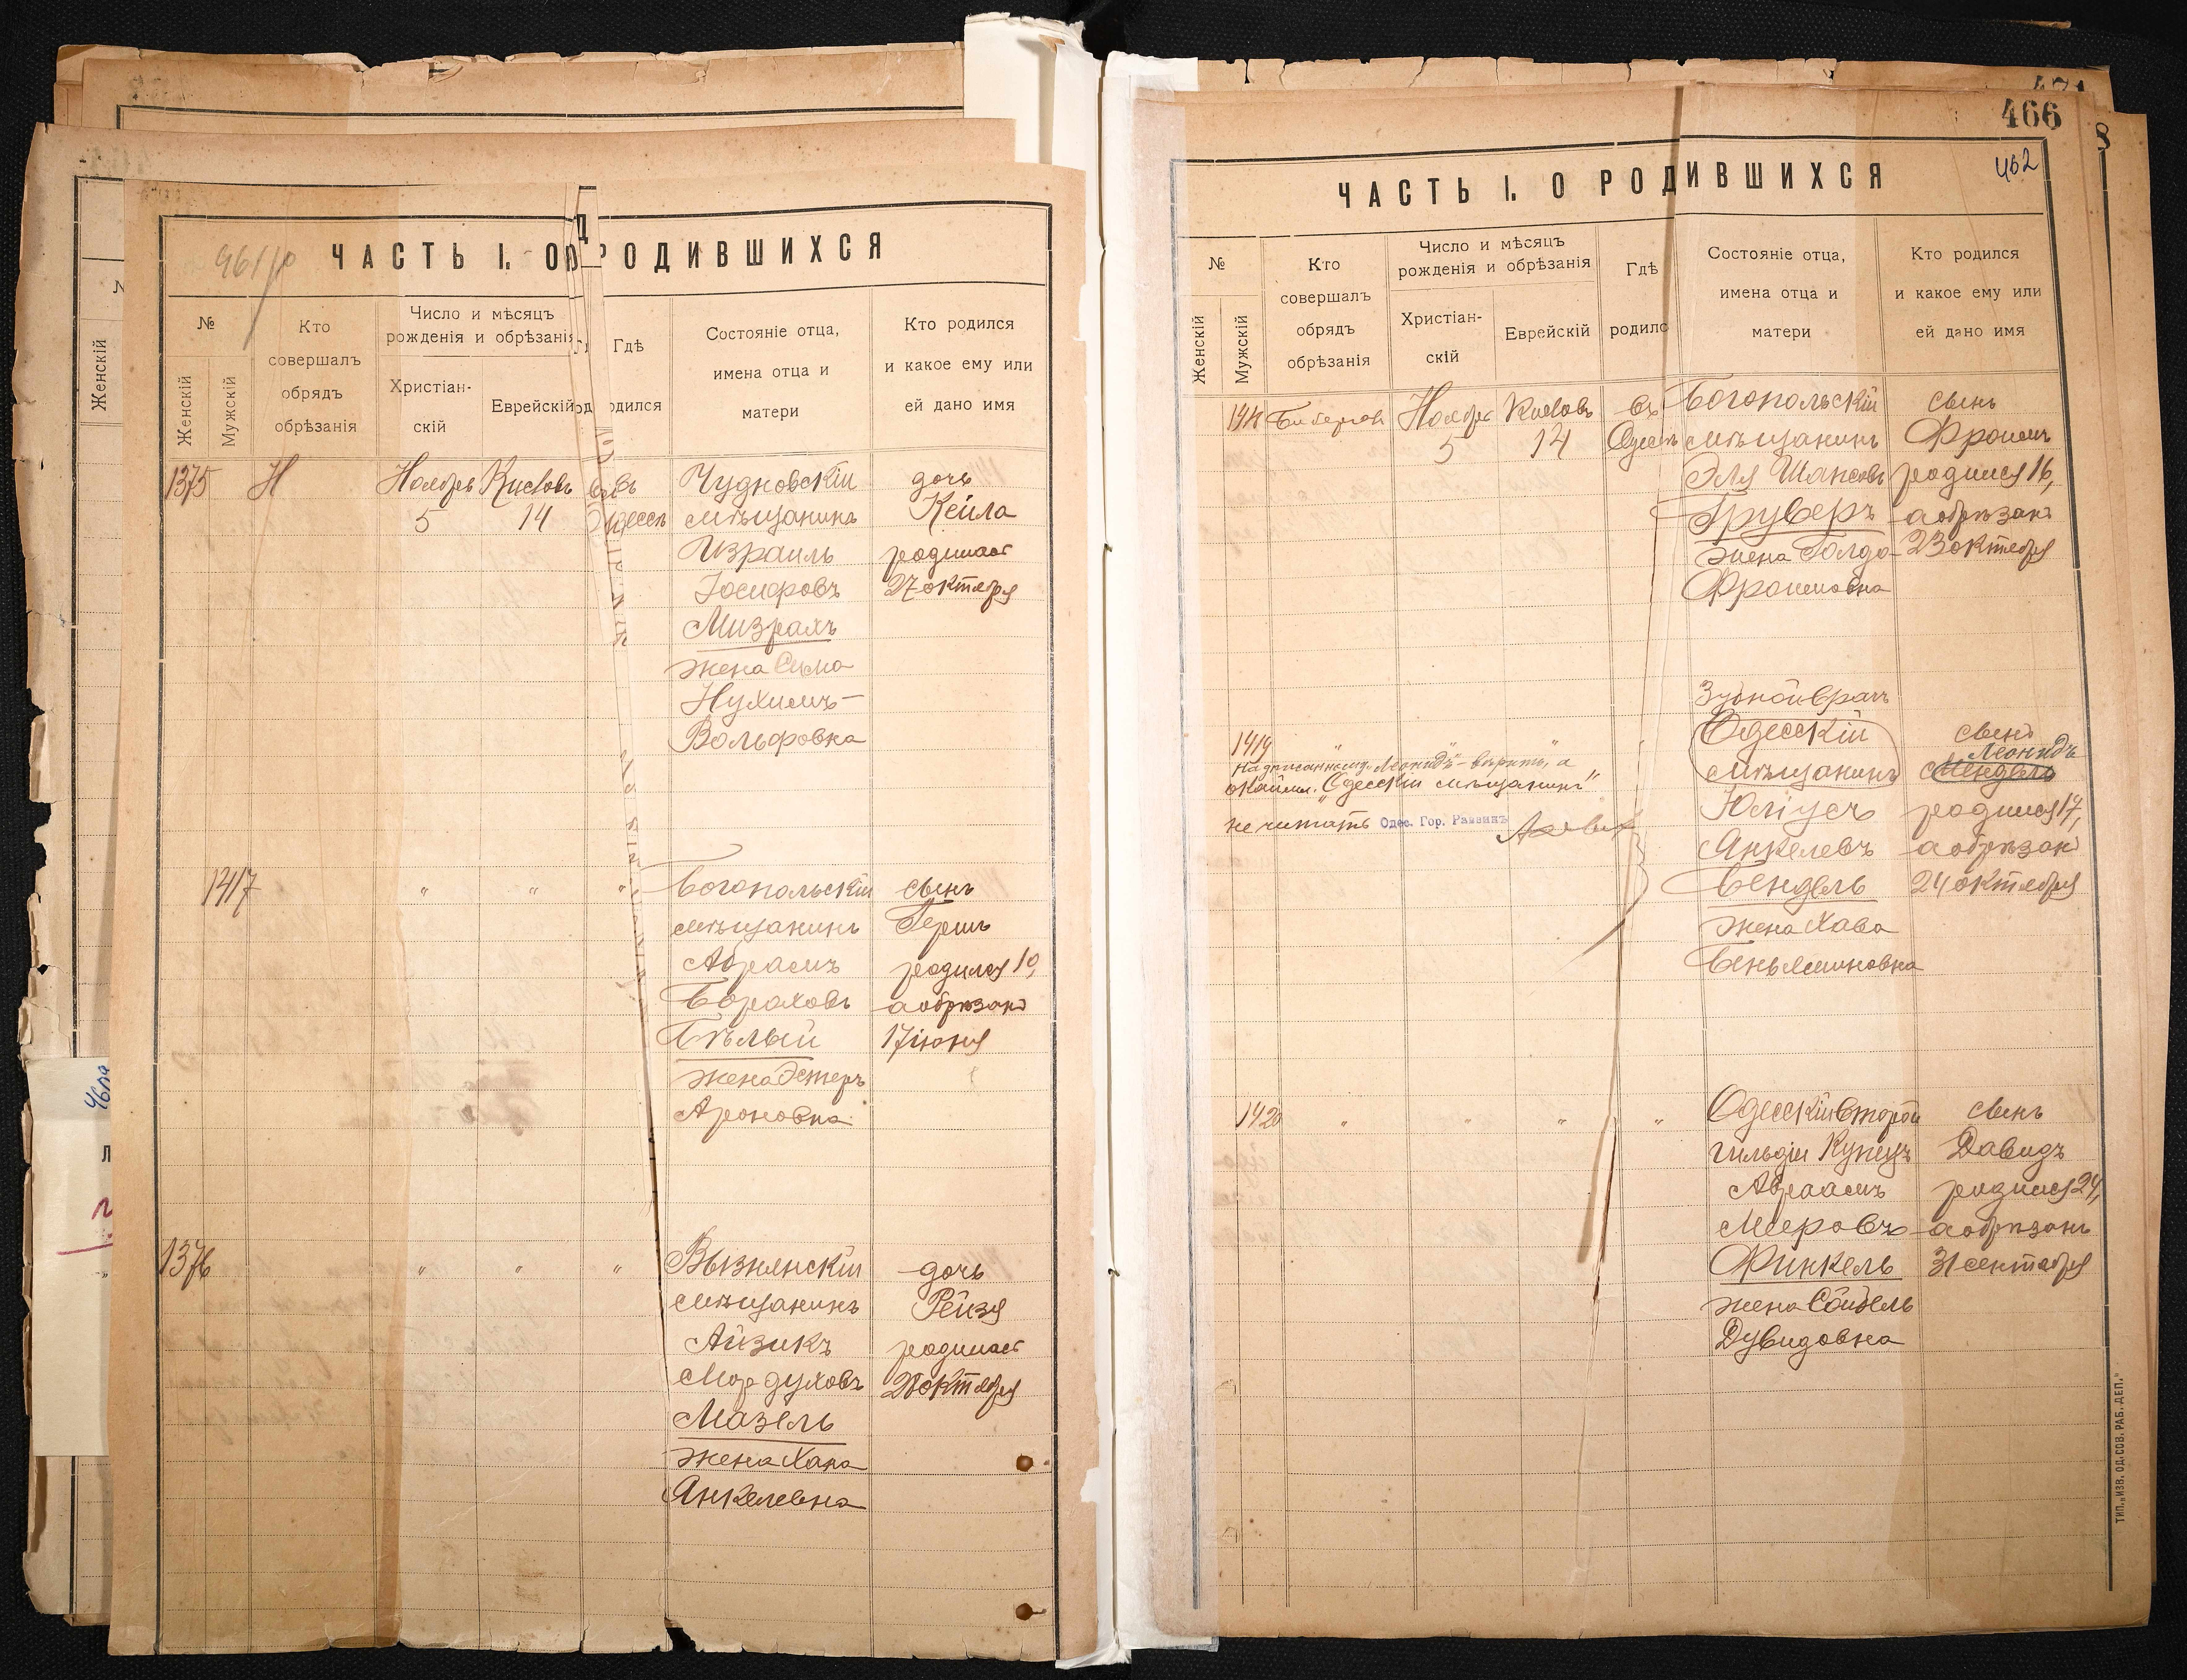 461/р
ЧАСТЬ I. О РОДИВШИХСЯ
№
Женскій
Мужскій
Кто совершалъ обрядъ обрѣзанія
Число и мѣсяцъ рожденія и обрѣзанія
Христіан-
скій
Еврейскій
Гдѣ
одился
Состояніе отца,
имена отца и
матери
Кто родился
и какое ему или
ей дано имя
1375 Н Ноябрь Кислов въ Чудновскій дочь
5 14 Одессѣ мѣщанинъ Кейла
Израиль родилась
Іосифовъ 27 октября
Мизрахъ
жена Сима
Нухимъ-
Вольфовна
1417 " " " Богопольскій сынъ
мѣщанинъ Гершъ
Абрамъ родился 10,
Бораховъ а обрѣзанъ
Бѣлый 17 іюня
жена Эстеръ
Ароновна
1376 " " " Вызнянскій дочь
мѣщанинъ Рейзя
Айзикъ родилась
Мордуховъ 28 октября
Мазель
жена Хана
Янкелевна
466
462
ЧАСТЬ I. О РОДИВШИХСЯ
№
Женскій
Мужскій
Кто
совершалъ
обрядъ
обрѣзанія
Число и мѣсяцъ
рожденія и обрѣзанія
Христіан-
скій
Еврейскій
Гдѣ
родилс
Состояніе отца,
имена отца и
матери
Кто родился
и какое ему или
ей дано имя
Ноябрь Кислов въ Богопольскій сынъ
5 14 Одессѣ мѣщанинъ Фроимъ
Эля родился 16,
Груберъ а обрѣзанъ
жена Голда 23 октября
Фроимовна
Зубной врачъ
1419 " " Одесскій сынъ
Леонидъ
мѣщанинъ Мендель
надписанному „Леонидъ" - вѣрить, а
окайм. „Одесскій мѣщанинъ"
не читать Одес. Гор. Раввинъ
Юліусъ родился 17,
Янкелевъ а обрѣзанъ
Бендель 24 октября
жена Хава
Беньяминовна
1420 " " " " Одесскій второй сынъ
гильдіи Купецъ Давидъ
Абраамъ родился 24,
Мееровъ а обрѣзанъ
Финкель 31 сентября
жена Сойбель
Дувидовна
ТИП. „ИЗВ. ОД. СОВ. РАБ. ДЕП."